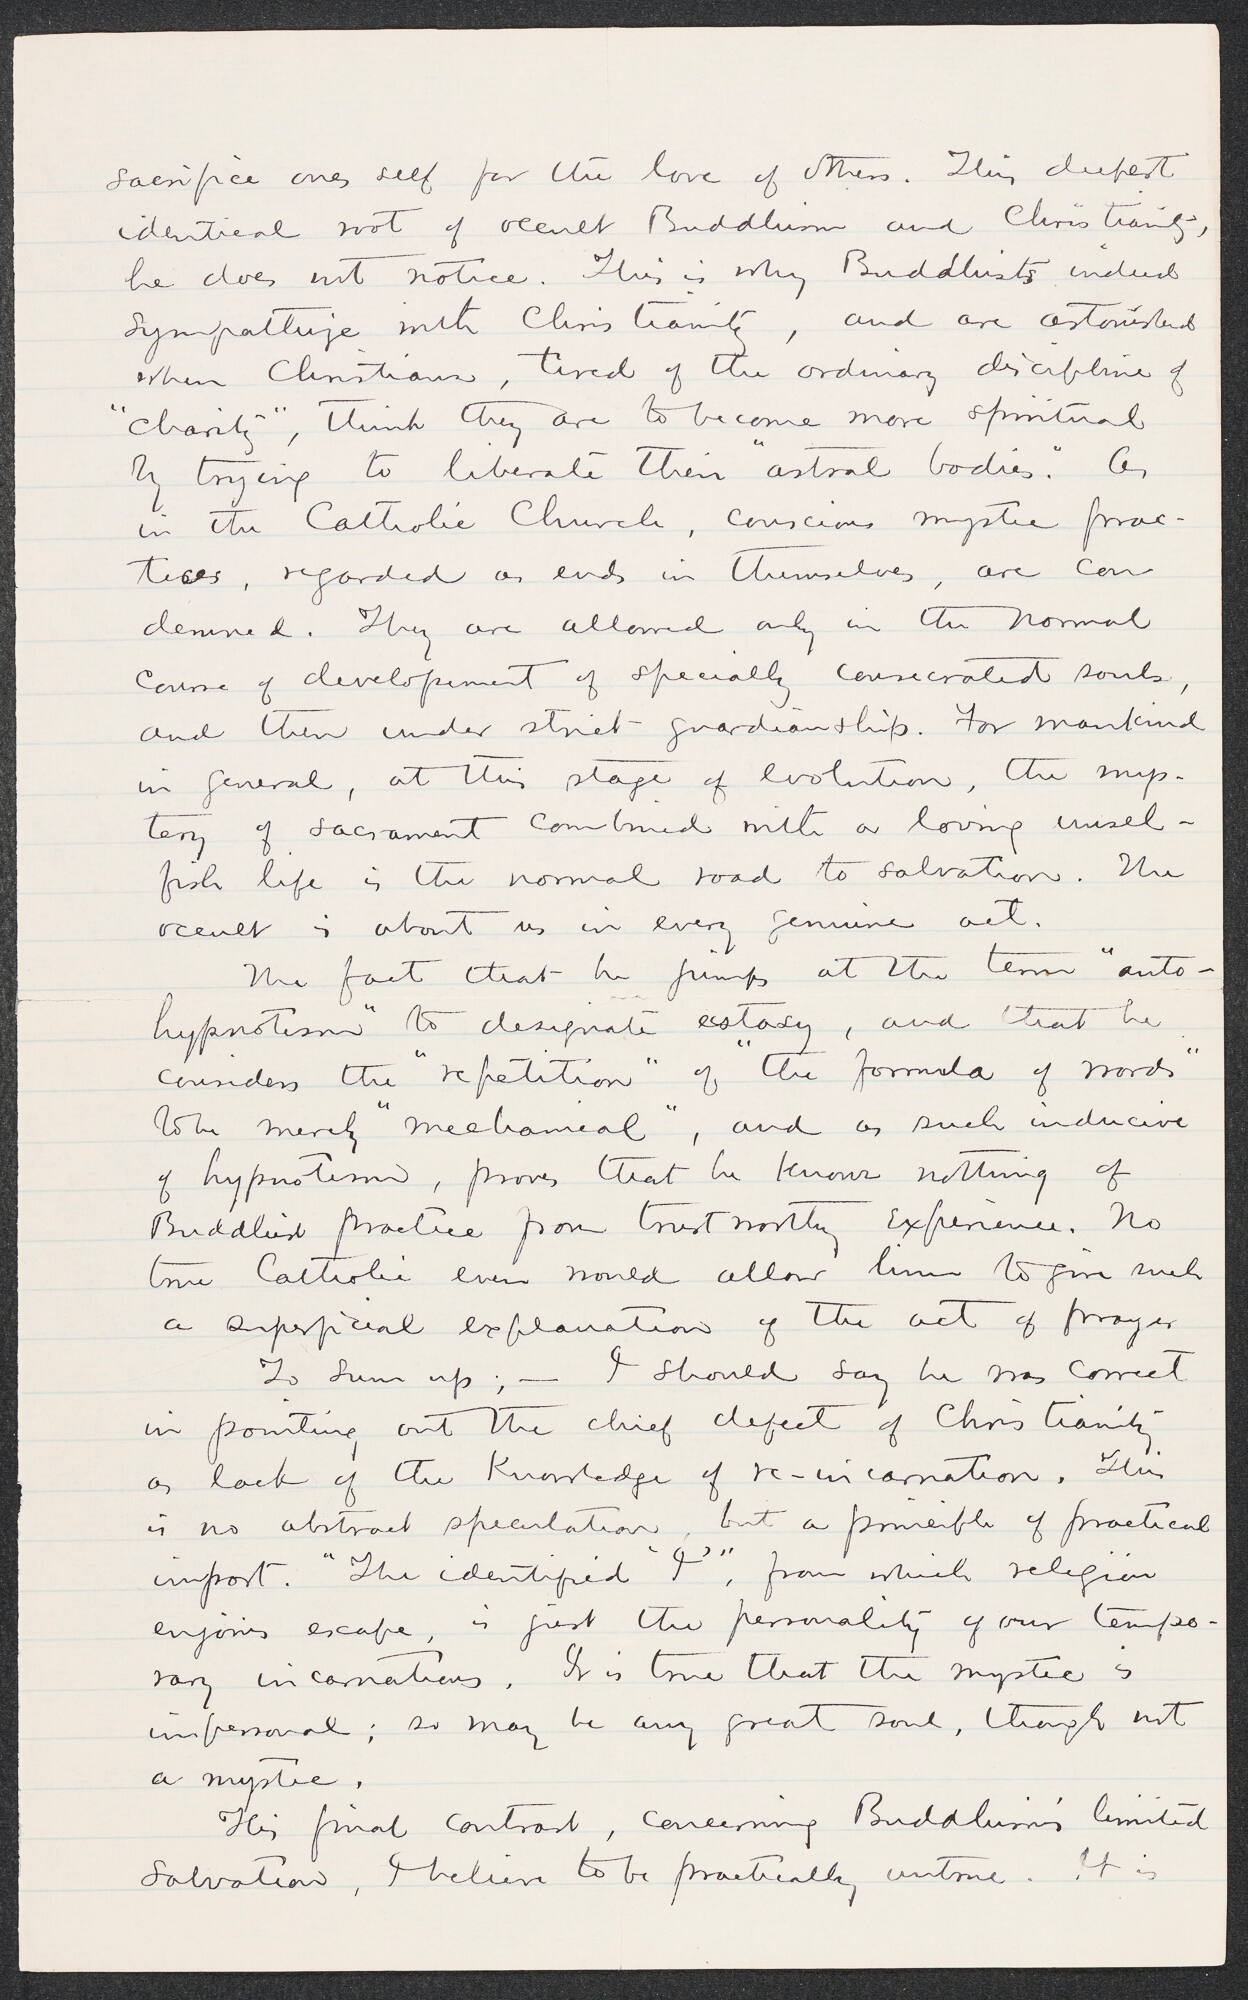 sacrifice ones self for the love of others. This deepest
identical root of occult Buddhism and Christianity,
he does not notice. This is why Buddhists indeed
sympathize with Christianity, and are astonished
when Christians, tired of the ordinary discipline of
"charity", think they are to become more spiritual
by trying to liberate their "astral bodies." As
in the Catholic Church, conscious mystic prac-
tices, regarded as ends in themselves, are con
demned. They are allowed only in the normal
course of developement of specially consecrated souls,
and then under strict guardianship. For mankind
in general, at this stage of evolution, the mys-
tery of sacrament combined with a loving unsel-
fish life is the normal road to salvation. The
occult is about us in every genuine act.
The fact that he jumps at the term "auto-
hypnotism" to designate ecstasy, and that he
considers the "repetition" of "the formula of words"
to be merely "mechanical", and as such inducive
of hypnotism, proves that he knows nothing of
Buddhist practice from trustworthy experience. No
true Catholic even would allow him to give such
a superficial explanation of the act of prayer
To sum up; — I should say he was correct
in pointing out the chief defect of Christianity
as lack of the knowledge of re-incarnation. This
is no abstract speculation, but a principle of practical
import. "The identified 'I'", from which religion
enjoins escape, is just the personality of our tempo-
rary incarnations. It is true that the mystic is
impersonal; so may be any great soul, though not
a mystic.
His final contrast, concerning Buddhism's limited
salvation, I believe to be practically untrue. It is